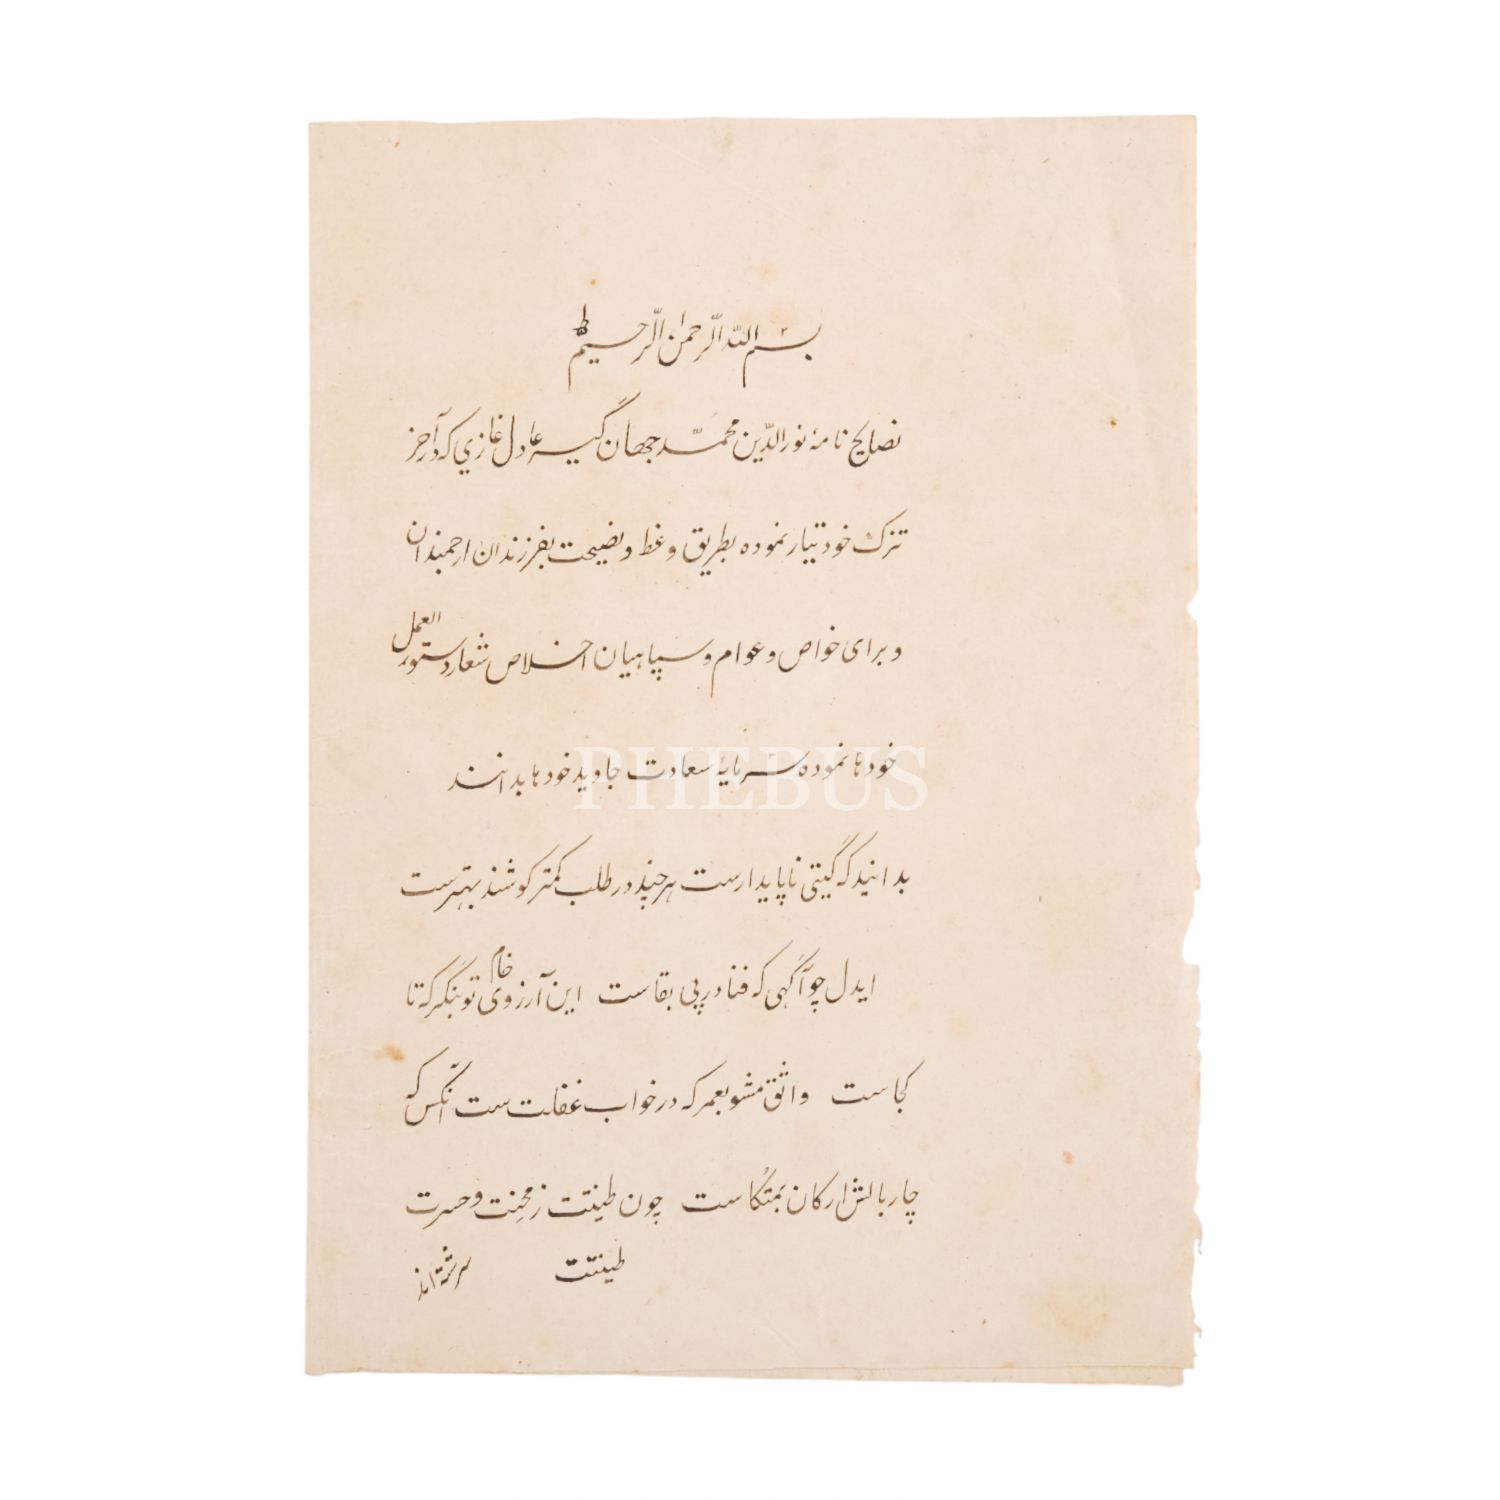 بسم الله الرحمن الرحیم
نصایح نامهٔ نورالدّین محمّد جهان گیر عادل غازی که در آخر
تزک خود تیار نموده بطریق وعظ و نصیحت بفرزندان ارجمندان
و برای خواص و عوام و سپاهیان اخلاص شعار دستور العمل
خود ها نموده سرمایهٔ سعادت جاوید خود ها بدانند
PHEBUS
بدانید که گیتی ناپایدارست هر چند در طلب کمتر کوشند بهترست
ایدل چو آگهی که فنا در پی بقاست این آرزوی خام تو بنگر که تا
کجاست واثق مشو بعمر که در خواب غفلت ست آنکس که
چار بالش ارکان بمتکاست چون طینتت ز محنت و حسرت
طینتت سرشته اند